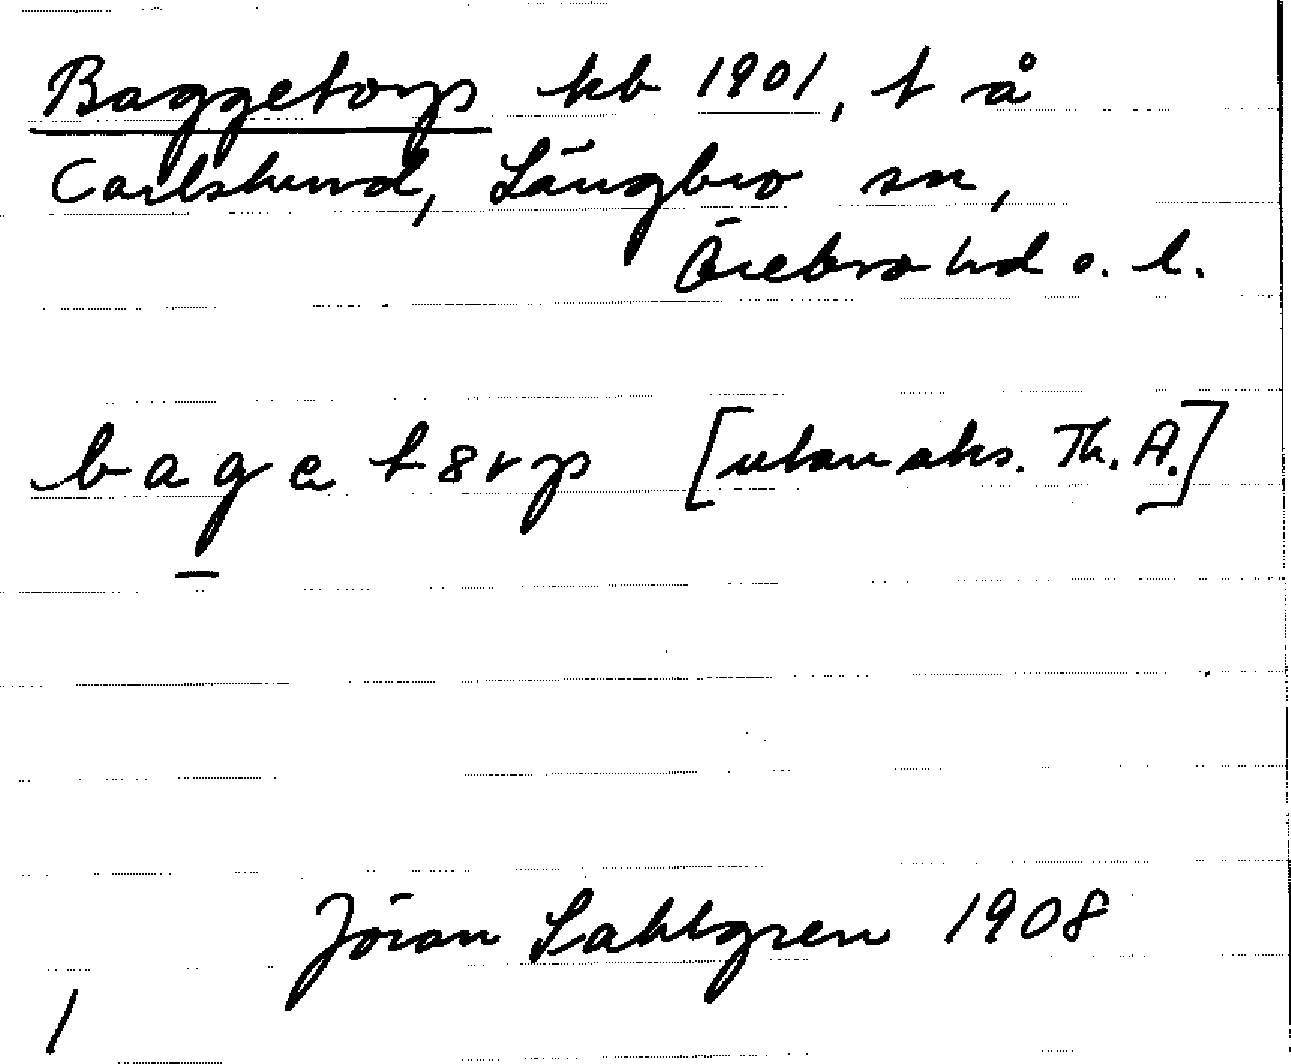 Baggetorp kb 1901, t å
Carlslund, Längbro sn,
Örebro hd o. l.
bagat8rp [utan aks. Th. A.]
Jöran Sahlgren 1908
1